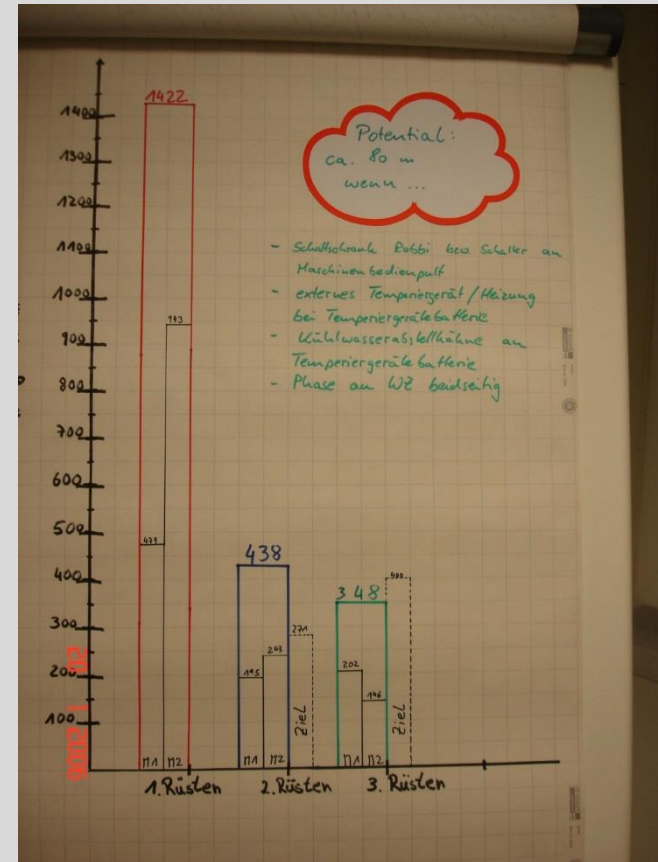 1400
1300
1200
1100
1000
900
800
700
600
500
400
300
200
100
1422
943
479
M1 M2
1. Rüsten
438
195
243
271
Ziel
M1 M2
2. Rüsten
348
202
146
400
Ziel
M1 M2
3. Rüsten
Potential:
ca. 80 m
wenn ...
- Schaltschrank Robbi bzw. Schalter an
Maschinenbedienpult
- externes Temperiergerät / Heizung
bei Temperiergerätebatterie
- Kühlwasserabstellhähne an
Temperiergerätebatterie
- Phase an WZ beidseitig